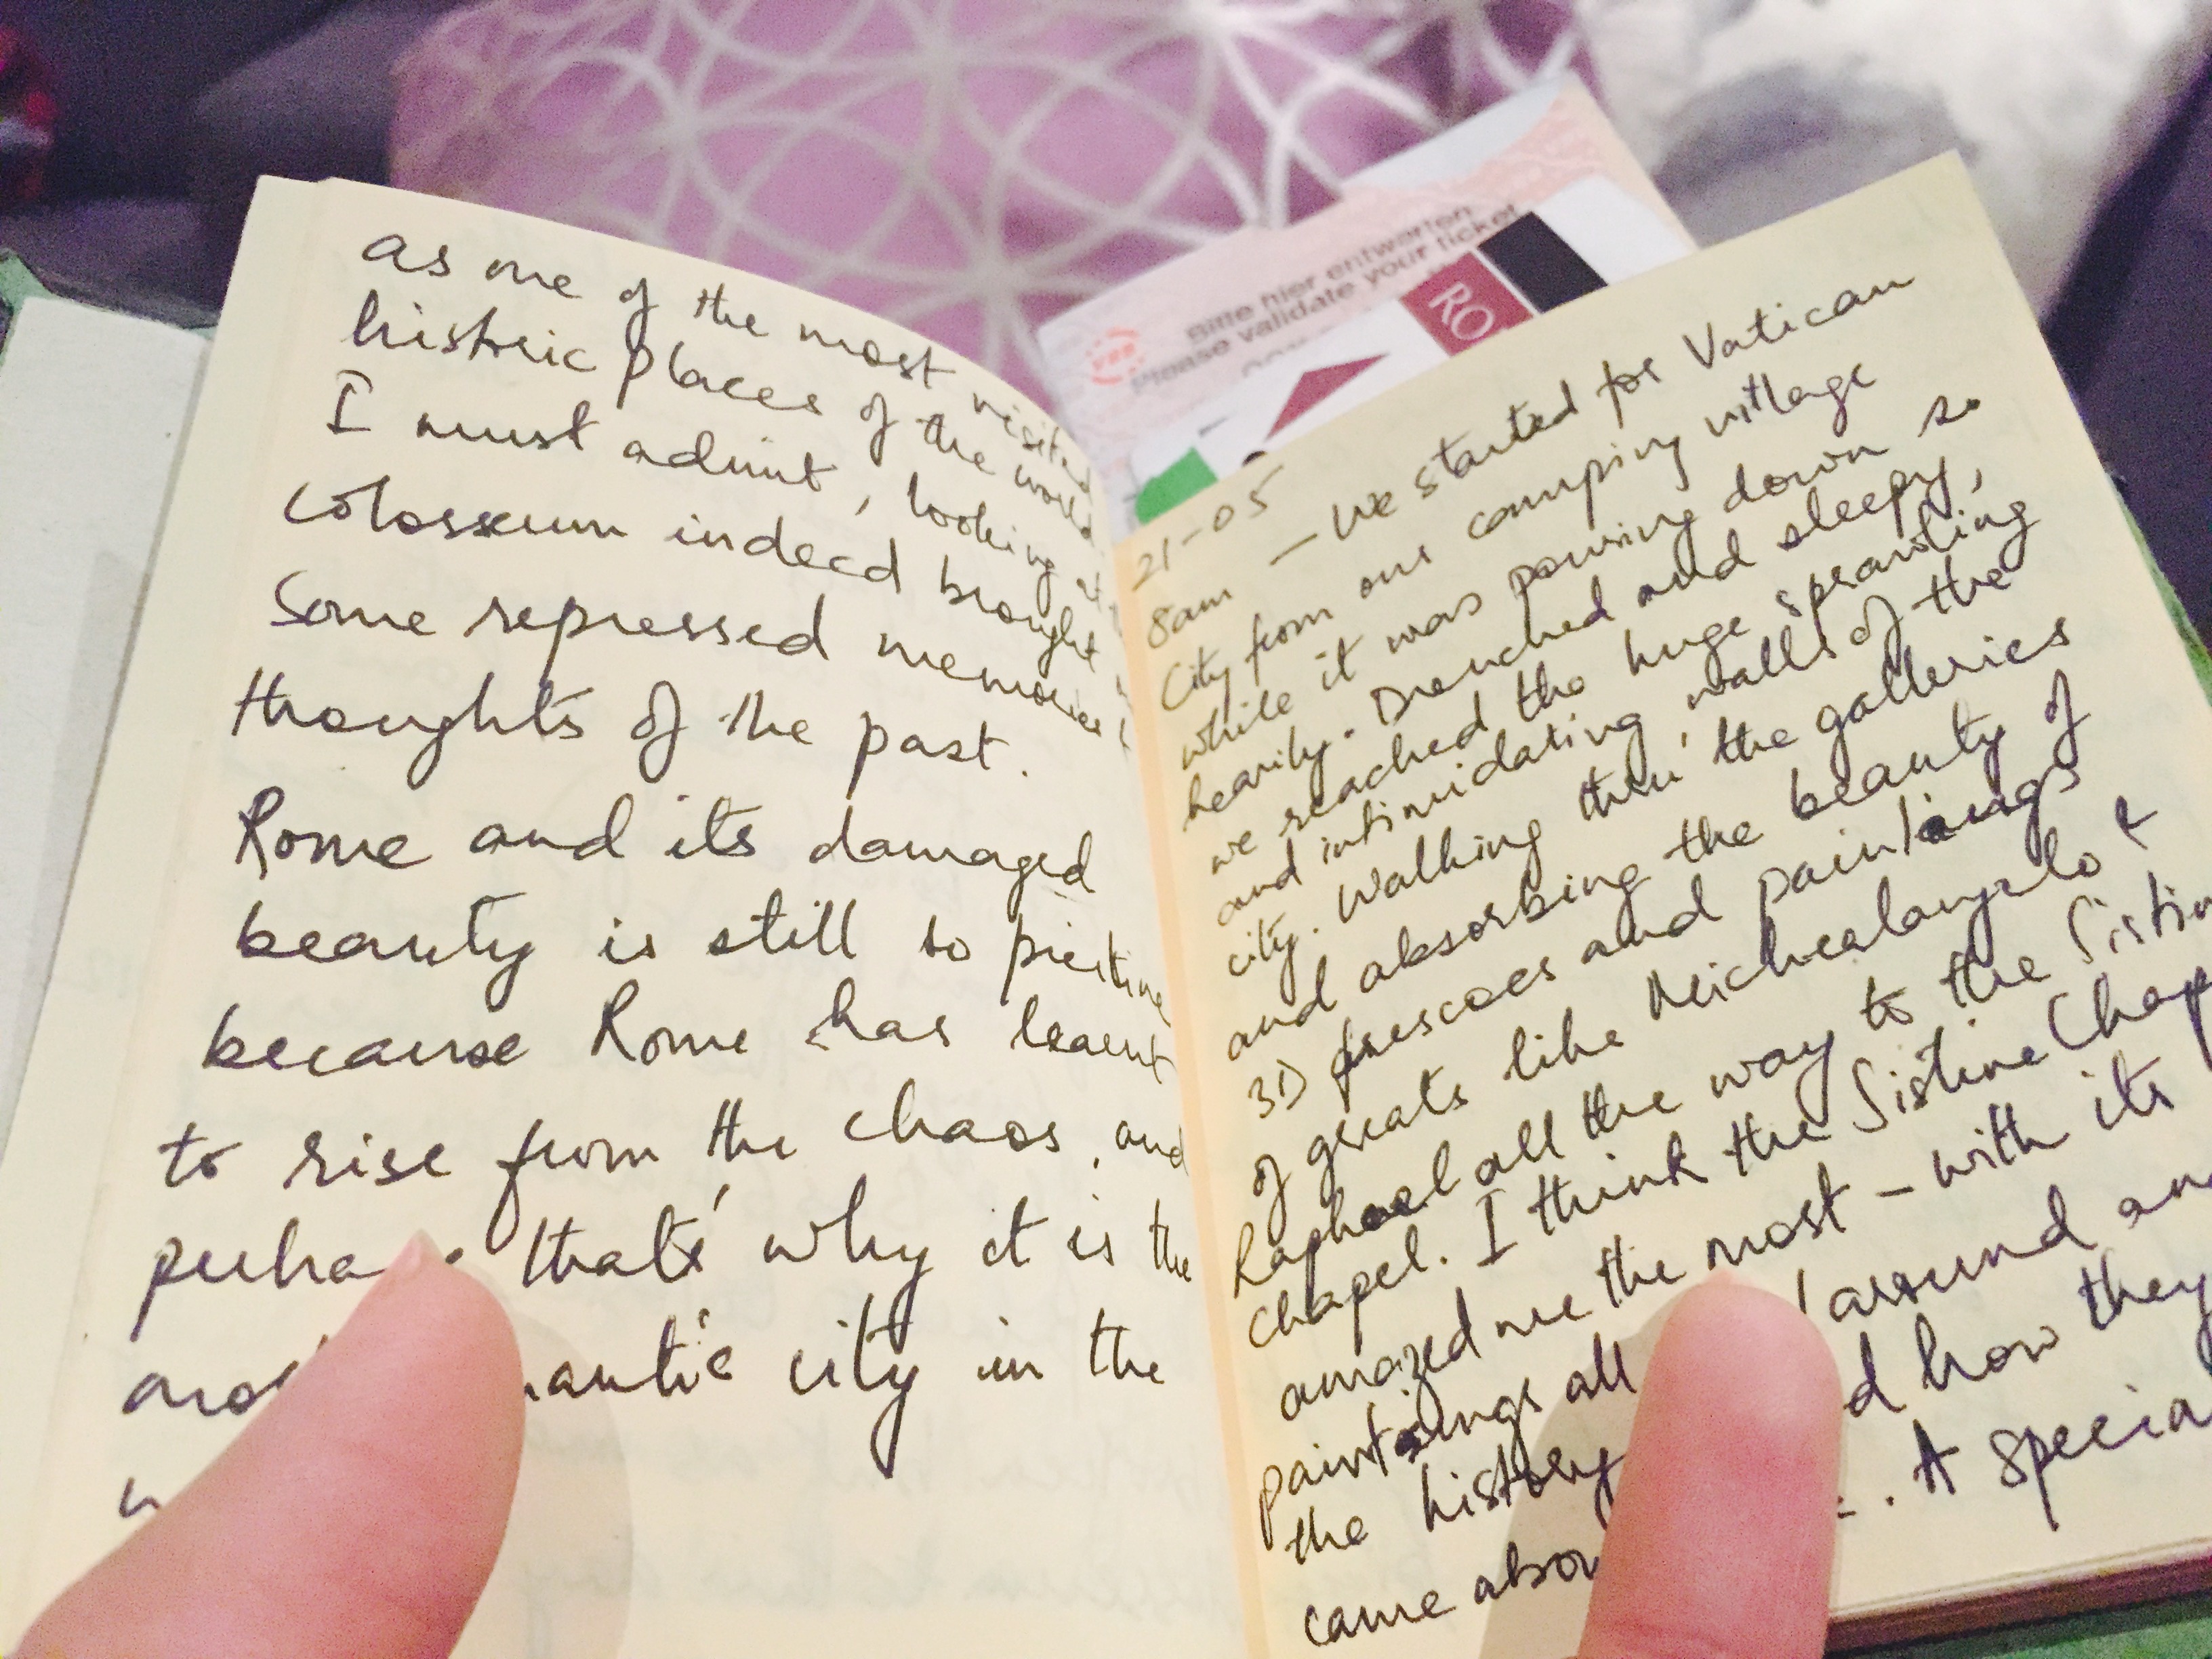 as one of the most visited
historic places of the world
I must admit, looking at
Colosseum indeed brought
Some repressed memories
thoughts of the past.
Rome and its damaged
beauty is still so pristine
because Rome has learnt
to rise from the chaos, and
that's why it is the
city in the
Bitte hier entwerten
Please validate your ticket
RO
21-05
8am - We started for Vatican
City from our camping village
while it was pouring down so
heavily. Drenched and sleepy,
we reached the huge sprawling
and intimidating walls of the
city. Walking thru' the galleries
and absorbing the beauty of
3D frescoes and paintings
of greats like Michealangelo &
Raphael all the way to the Sistin
Chapel. I think the Sistine Chap
amazed me the most - with its
paintings all around and
the history d how they
came abou . A specia